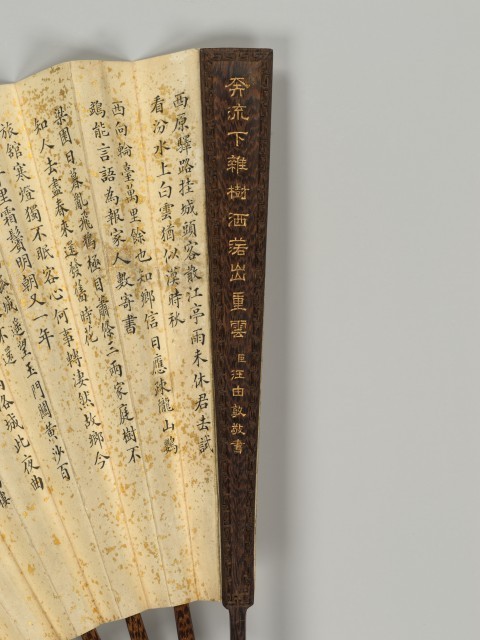 奔流下雜樹洒落出重雲 臣汪由敦敬書
西原驛路挂城頭客散江亭雨未休君去試
看汾水上白雲猶似漢時秋
西向輪臺萬里餘也知鄉信日應疎隴山鸚
鵡能言語為報家人數寄書
梁園日暮亂飛鴉極目蕭條三兩家庭樹不
知人去盡春來還發舊時花
旅館寒燈獨不眠客心何事轉淒然故鄉今
里霜鬢明朝又一年
城遙望玉門關黃沙百
不還
洛城此夜曲
樓